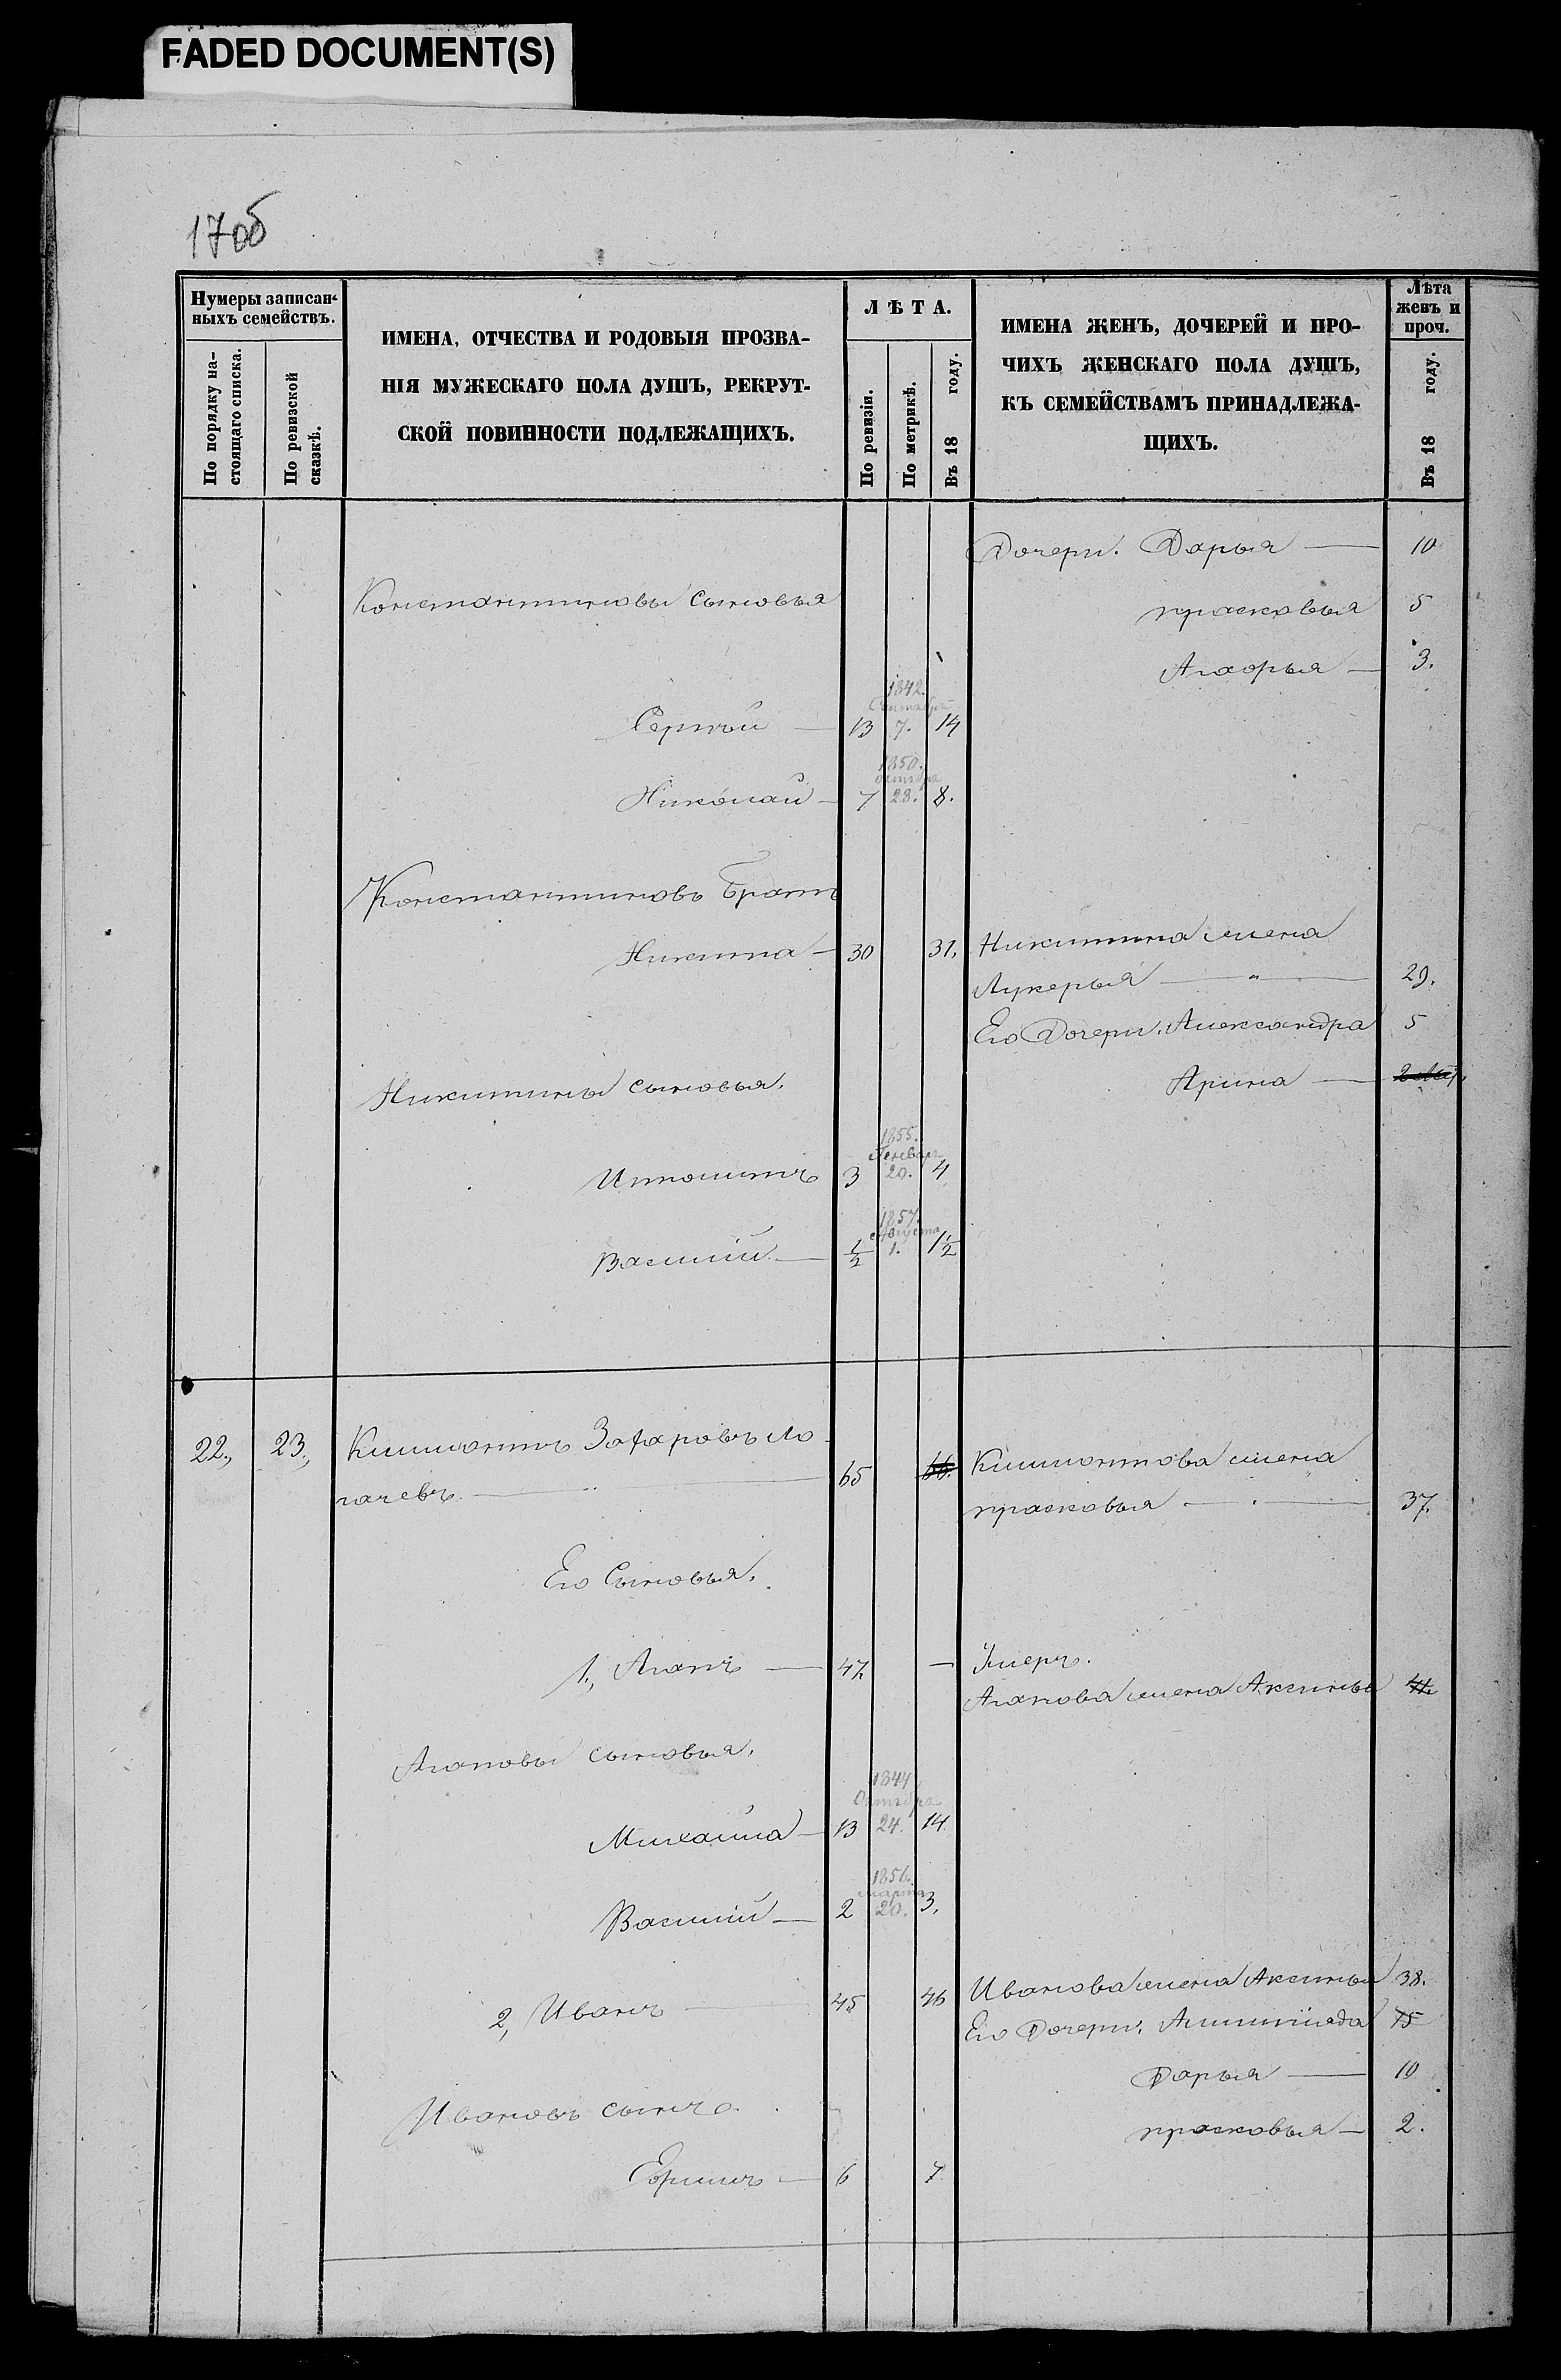 FADED DOCUMENT(S)
17об
Нумеры записан-
ныхъ семействъ.
По порядку на-
стоящаго списка.
По ревизской
сказкѣ.
ИМЕНА, ОТЧЕСТВА И РОДОВЫЯ ПРОЗВА-
НІЯ МУЖЕСКАГО ПОЛА ДУШЪ, РЕКРУТ-
СКОЙ ПОВИННОСТИ ПОДЛЕЖАЩИХЪ.
ЛѢТА.
По ревизіи.
По метрикѣ.
Въ 18 году.
ИМЕНА ЖЕНЪ, ДОЧЕРЕЙ И ПРО-
ЧИХЪ ЖЕНСКАГО ПОЛА ДУШЪ,
КЪ СЕМЕЙСТВАМЪ ПРИНАДЛЕЖА-
ЩИХЪ.
Лѣта
женъ и
проч.
Въ 18 году.
Дочери. Дарья — 10
Константиновы сыновья
прасковья 5
3.
1842.
Сентября
Сергѣй — 13 7. 14
1850.
октября
Николай — 7 28. 8.
Константиновъ братъ
Никита — 30 31. Никитина жена
Лукерья — 29.
Его Дочери. Александра 5
Никитины сыновья.
Арина —
1855.
Генваря
Ипполитъ 3 20. 4
1857.
Августа
Василій — 1/2 1. 1 1/2
22., 23., Климонтъ Захаровъ Ло
гачевъ. — 65 66. Климонтова жена
прасковья — 37.
Его Сыновья.
1., Агапъ — 47. — Умеръ.
Агапова жена Аксинья 41.
Агаповы сыновья.
1844
Октября
Михайла — 13 24. 14
1856.
Марта
Василій — 2 20. 3.
2, Иванъ — 45 46 Иванова жена Аксинья 38.
Его Дочери. 15
Дарья — 10
Ивановъ сынъ
прасковья — 2.
Ефимъ — 6 7